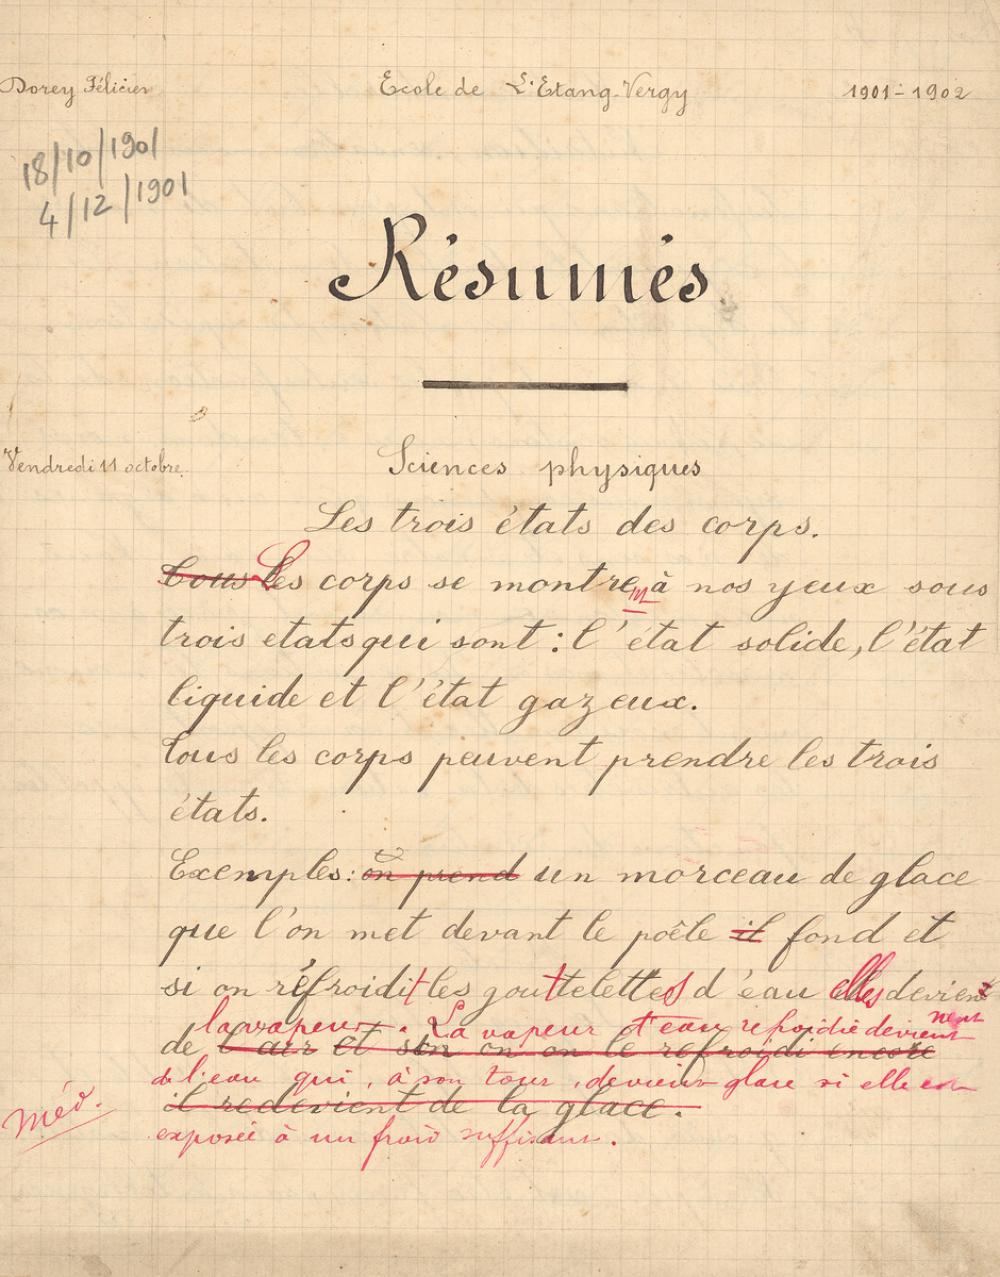 Dorey Félicien
Ecole de L'Etang-Vergy
1901-1902
18/10/1901
4/12/1901
Résumés
Vendredi 11 octobre.
Sciences physiques
Les trois états des corps.
Tous Les corps se montrent à nos yeux sous
trois etats qui sont : l'état solide, l'état
liquide et l'état gazeux.
Tous les corps peuvent prendre les trois
états.
Exemples : on prend un morceau de glace
que l'on met devant le poêle il fond et
si on réfroidit les gouttelettes d'eau elles devien
nent
la vapeur. La vapeur d'eau refroidie devient
de l'air et si on le refroidi encore
de l'eau qui, à son tour, devient glace si elle est
il redevient de la glace.
méd.
exposée à un froid suffisant.